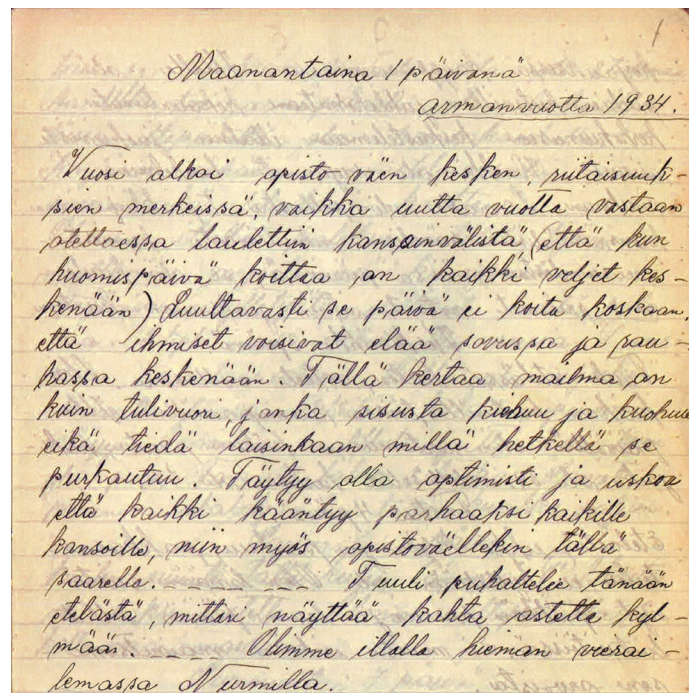 1
Maanantaina 1 päivänä
armonvuotta 1934.
Vuosi alkoi opisto väen kesken, riitaisuuk-
sien merkeissä, vaikka uutta vuotta vastaan
otettaessa laulettiin kansainvälistä (että kun
huomispäivä koittaa, on kaikki veljet kes-
kenään) Luultavasti se päivä ei koita koskaan,
että ihmiset voisivat elää sovussa ja rau-
hassa keskenään. Tällä kertaa mailma on
kuin tulivuori, jonka sisusta kiehuu ja kuohuu
eikä tiedä laisinkaan millä hetkellä se
purkautuu. Täytyy olla optimisti ja uskoa
että kaikki kääntyy parhaaksi kaikille
kansoille, niin myös opistoväellekin tällä
saarella. _ _ _ _ _ _ _ Tuuli puhaltelee tänään
etelästä, mittari näyttää kahta astetta kyl-
mää. _ _ Olimme illalla hieman vierai-
lemassa Nurmilla.